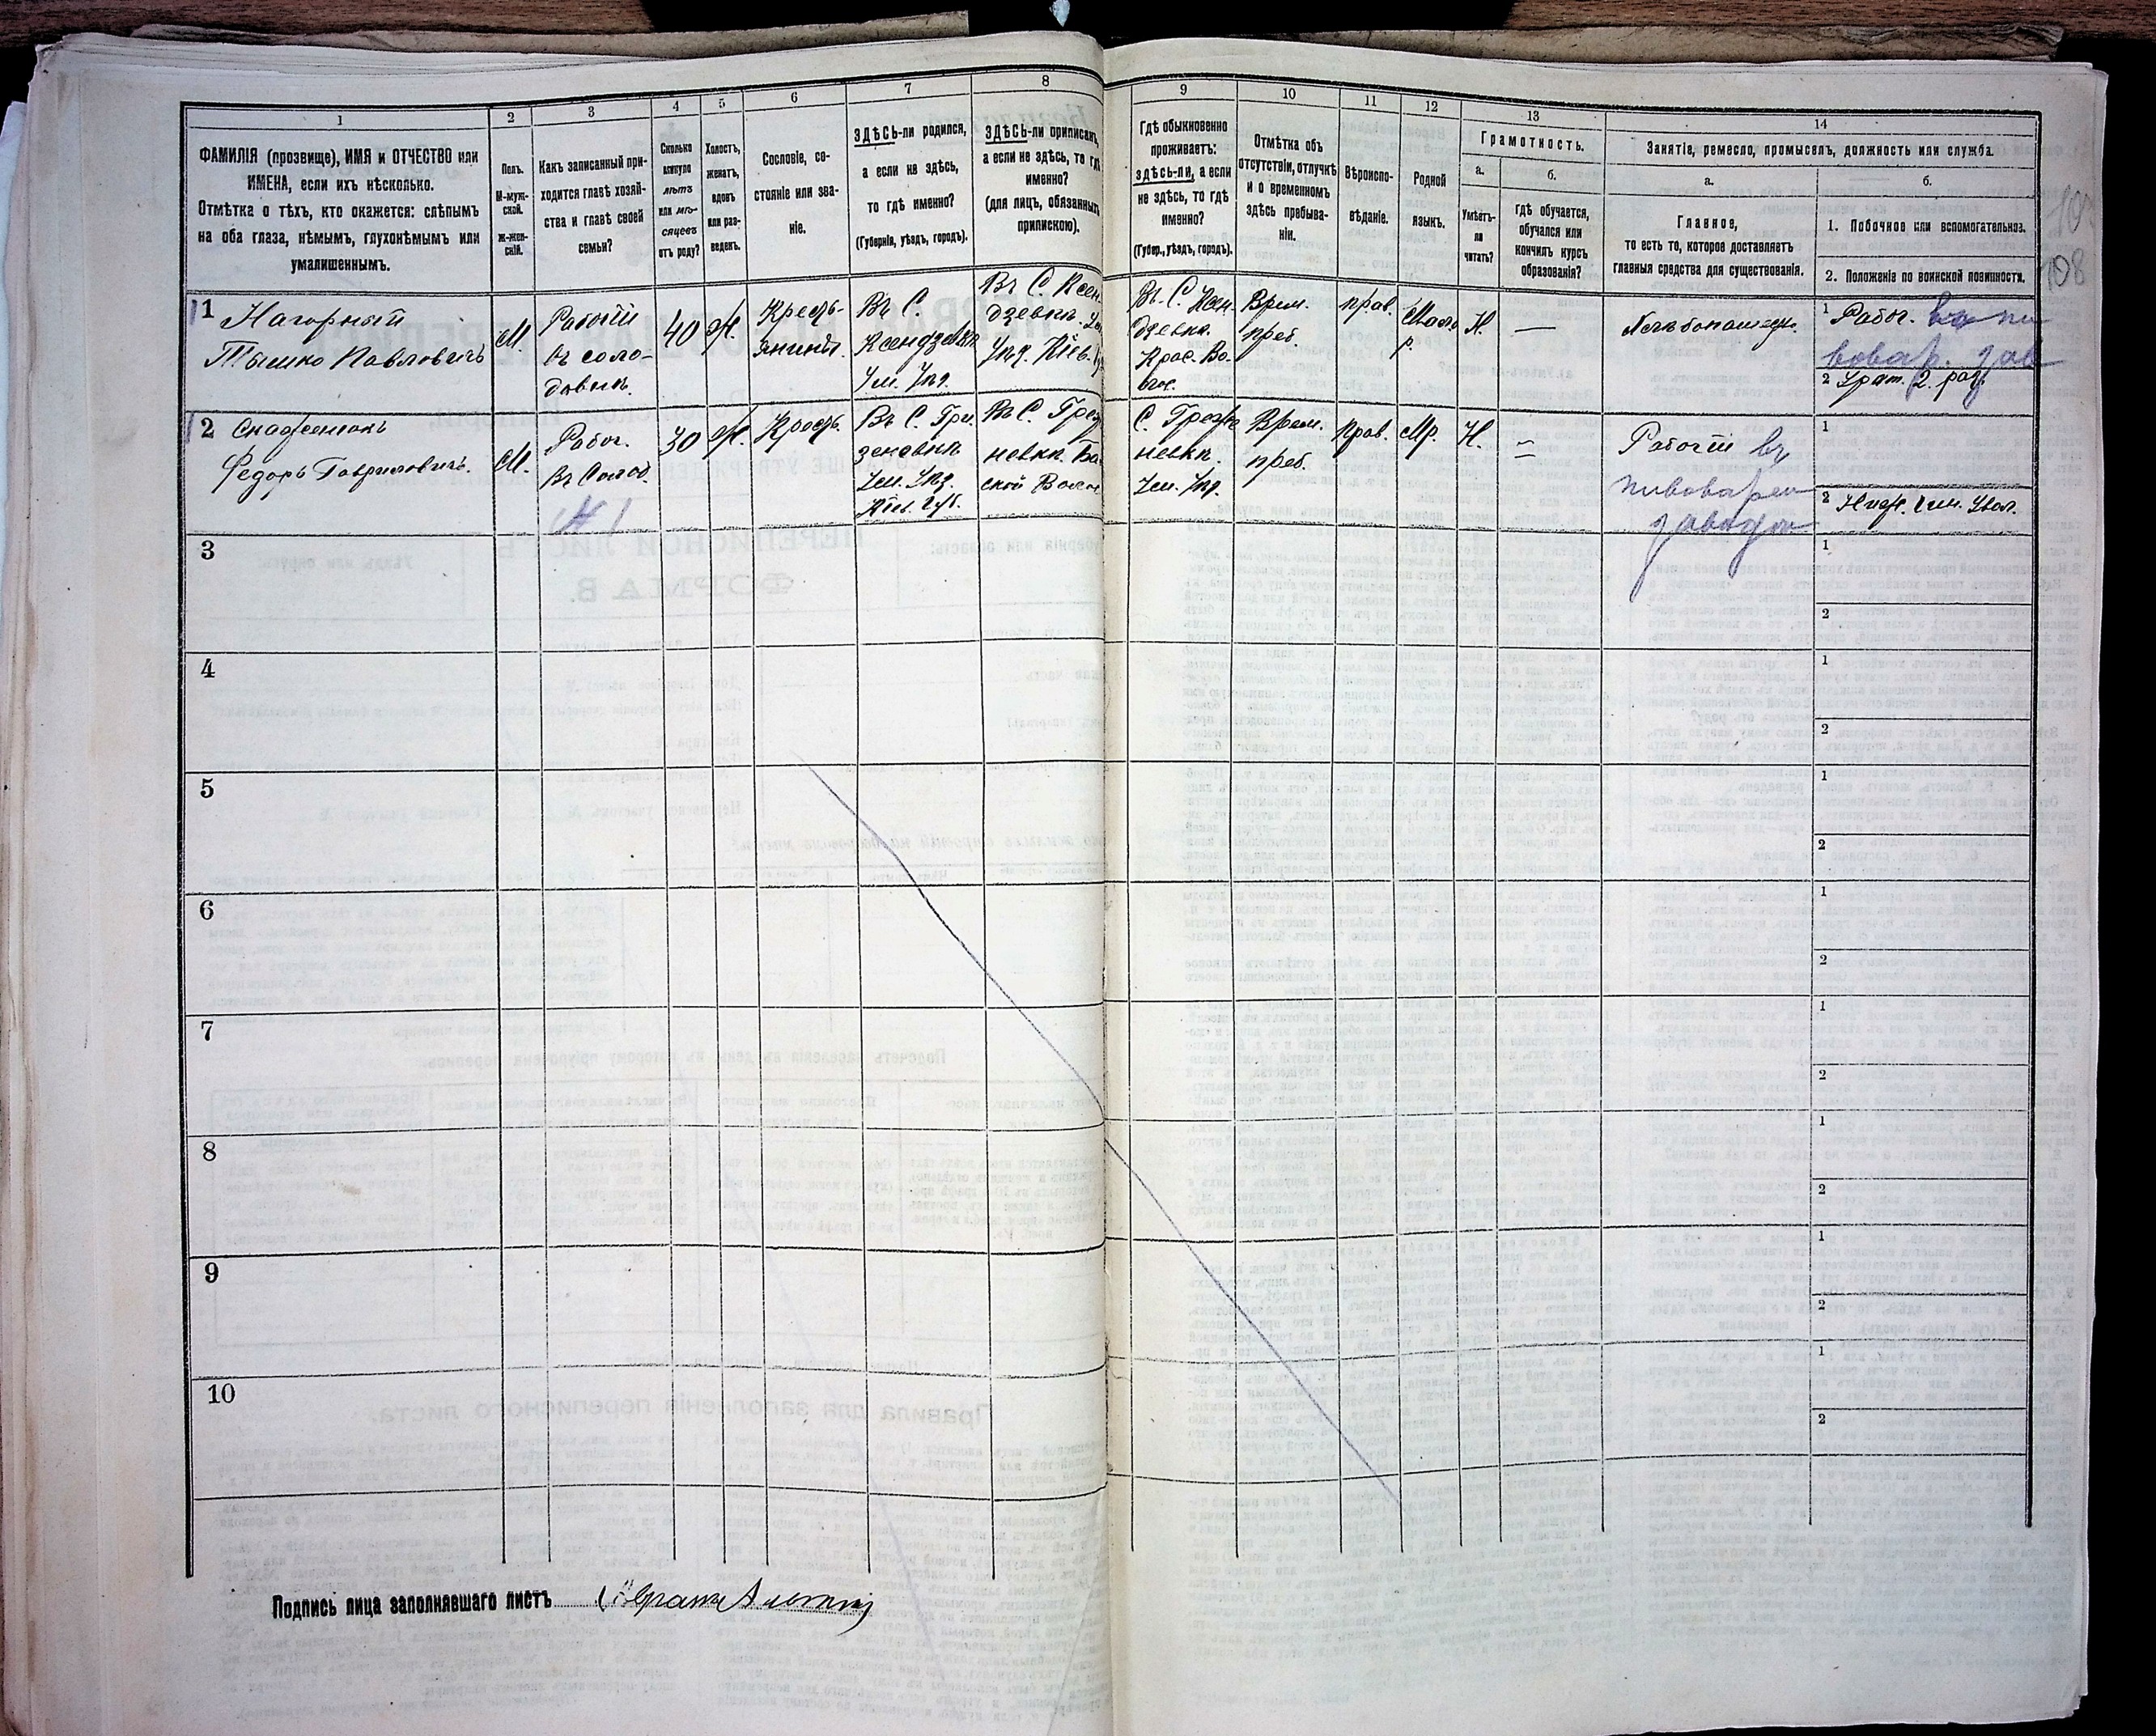 1
2
3
4
5
6
7
8
9
10
11
12
13
14
ФАМИЛІЯ (прозвище), ИМЯ и ОТЧЕСТВО или
ИМЕНА, если ихъ нѣсколько.
Отмѣтка о тѣхъ, кто окажется: слѣпымъ
на оба глаза, нѣмымъ, глухонѣмымъ или
умалишеннымъ.
Полъ.
М-муж-
ской.
Ж-жен-
скій.
Какъ записанный при-
ходится главѣ хозяй-
ства и главѣ своей
семьи?
Сколько
минуло
лѣтъ
или мѣ-
сяцевъ
отъ роду?
Холостъ,
женатъ,
вдовъ
или раз-
веденъ.
Сословіе, со-
стояніе или зва-
ніе.
ЗДѢСЬ-ли родился,
а если не здѣсь,
то гдѣ именно?
(Губернія, уѣздъ, городъ).
ЗДѢСЬ-ли приписанъ,
а если не здѣсь, то гдѣ
именно?
(для лицъ, обязанныхъ
припискою).
Гдѣ обыкновенно
проживаетъ:
здѣсь-ли, а если
не здѣсь, то гдѣ
именно?
(Губер., уѣздъ, городъ).
Отмѣтка объ
отсутствіи, отлучкѣ
и о временномъ
здѣсь пребыва-
ніи.
Вѣроиспо-
вѣданіе.
Родной
языкъ.
Грамотность.
а.
Умѣетъ-
ли
читать?
б.
гдѣ обучается,
обучался или
кончилъ курсъ
образованія?
Занятіе, ремесло, промыселъ, должность или служба.
а.
Главное,
то есть то, которое доставляетъ
главныя средства для существованія.
б.
1. Побочное или вспомогательное.
2. Положеніе по воинской повинности.
108
1
Нагорный
Тышко Павловичъ
М.
Рабочій
въ соло-
довнѣ
40
Ж.
Кресть-
янинъ.
Въ С.
Ксендзевкѣ
Ум. Уѣз.
Въ С. Ксен-
дзевкѣ
Уѣз. Кіев.
Въ С. Ксен-
дзевкѣ
Врем.
преб.
прав.
Мало
р.
Н.
—
1 Рабоч. въ пи
вовар. зав
2 Храт. 2. раз.
2
Федоръ Гавриловичъ.
М.
Рабоч.
въ Солод.
30
Ж.
Крест.
Въ С. Гри-
Ум. Уѣз.
Кіев. Губ.
Въ С.
невкѣ
ской Волос
С.
невкѣ.
Ум. Уѣз.
Врем.
преб.
Прав.
Мр.
Н.
=
Рабочій въ
пивоварен
заводѣ
1
2
3
1
2
4
1
2
5
1
2
6
1
2
7
1
2
8
1
2
9
1
2
10
1
2
Подпись лица заполнявшаго листъ